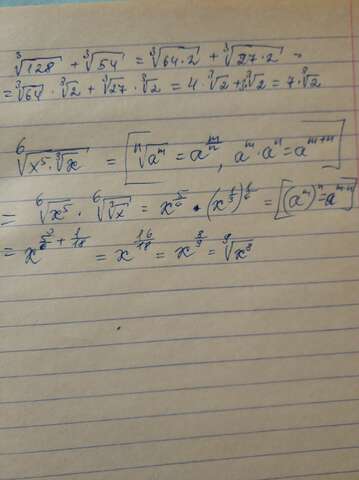 ∛128 + ∛54 = ∛(64·2) + ∛(27·2) =
= ∛64 · ∛2 + ∛27 · ∛2 = 4·∛2 + 3∛2 = 7·∛2
⁶√(x⁵·∛x) = [ⁿ√aᵐ = a^(m/n), aᵐ·aⁿ = a^(m+n)]
= ⁶√x⁵ · ⁶√(∛x) = x^(5/6) · (x^(1/3))^(1/6) = [(aᵐ)ⁿ = a^(m·n)]
= x^(5/6 + 1/18) = x^(16/18) = x^(8/9) = ⁹√x⁸